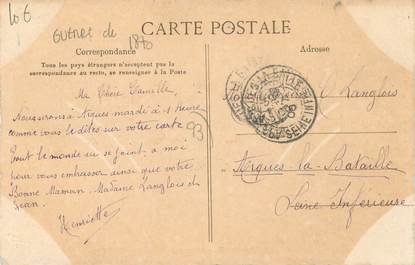 10 €
guerre de
1870
CARTE POSTALE
Correspondance
Adresse
Tous les pays étrangers n'acceptent pas la
correspondance au recto, se renseigner à la Poste
Ma Chère Camille
Nous irons à Arques mardi à 1 heure
comme vous le dites sur votre carte
Tout le monde se joint à moi
pour vous embrasser ainsi que votre
Bonne Maman Madame Langlois et
Jean.
Henriette
93
Langlois
Arques-la-Bataille
Seine Inférieure